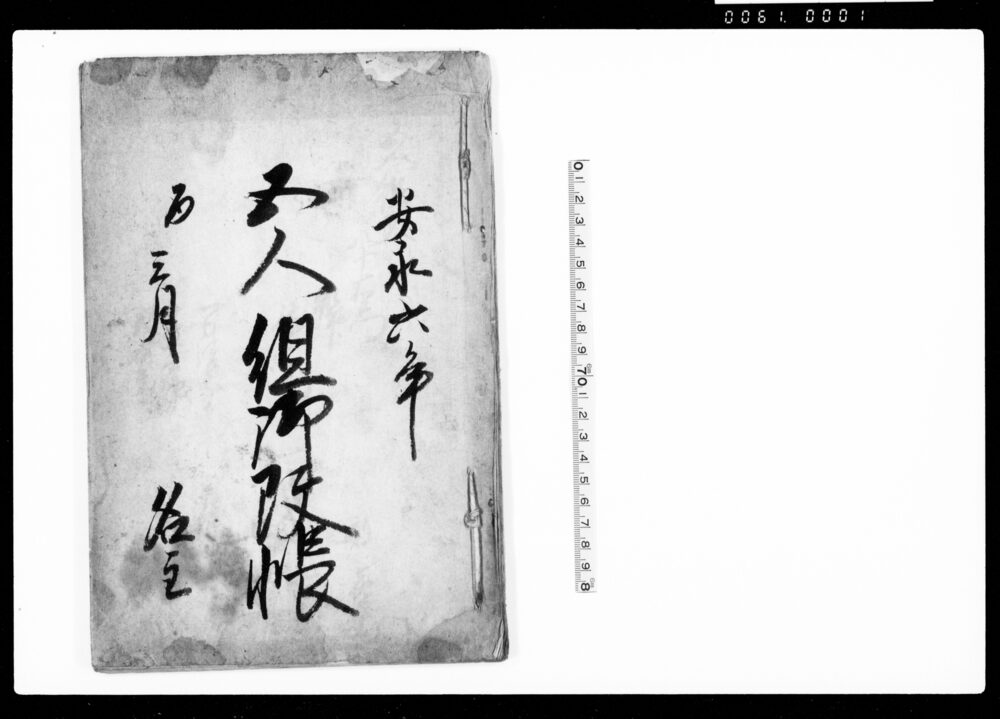 0061. 0001
安永六年
五人組御改帳
酉三月
名主
0 1 2 3 4 5 6 7 8 9 70 1 2 3 4 5 6 7 8 9 8